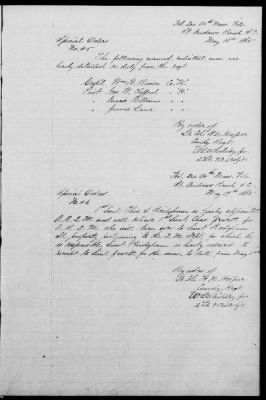 Hd. Qrs 54th Mass. Vols.
St Andrews Parish S.C.
May 18th 1865
Special Orders
No. 45
The following named enlisted men are
hereby detailed on duty from the regt
Corpl. Wm H. Co. "K"
Privt. Geo. W. "H"
" Williams "
" James Lane "
By order of
Lt. Col. H. N. Hooper
Comdg Regt
2nd Lt.
Hd. Qrs 54th Mass. Vols.
St. Andrews Parish S.C.
May 19th 1865
Special Orders
No. 46
1st Lieut. Thos. S. Bridgham is hereby appointed
A.R.Q.M. and will relieve 1st Lieut
A.R.Q.M. who will turn over to Lieut Bridgham
all property belonging to the Q.M. Dept. for which he
is responsible, Lieut Bridgham is hereby ordered to
receipt to Lieut for the same, to date from May
By order of
Lt Col. H. N. Hooper
Comdg Regt.
2nd Lt